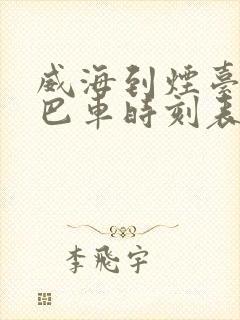 威海到煙臺
巴車時刻表
李飛宇